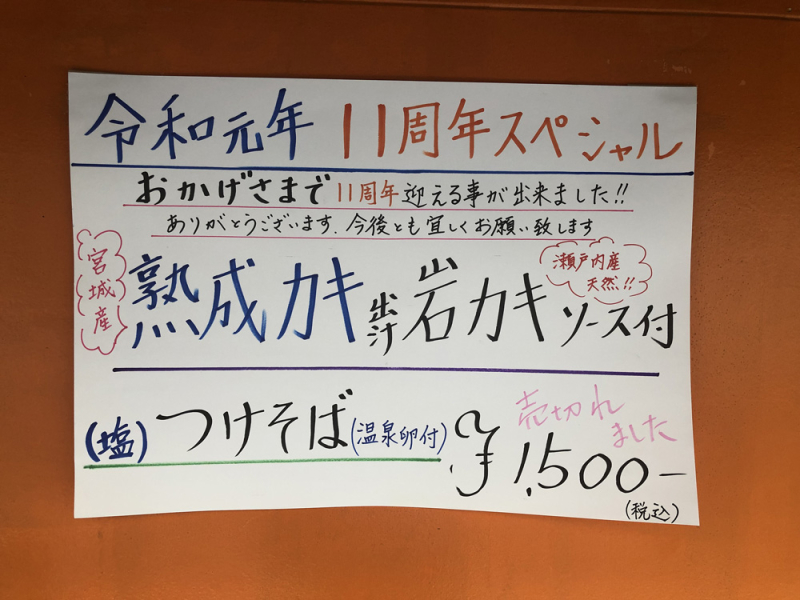 令和元年 11周年スペシャル
おかげさまで11周年迎える事が出来ました!!
ありがとうございます.今後とも宜しくお願い致します
宮城産
熟成カキ出汁岩カキソース付
瀬戸内産
天然!!
(塩)つけそば(温泉卵付)¥1,500-
売切れ
ました
(税込)